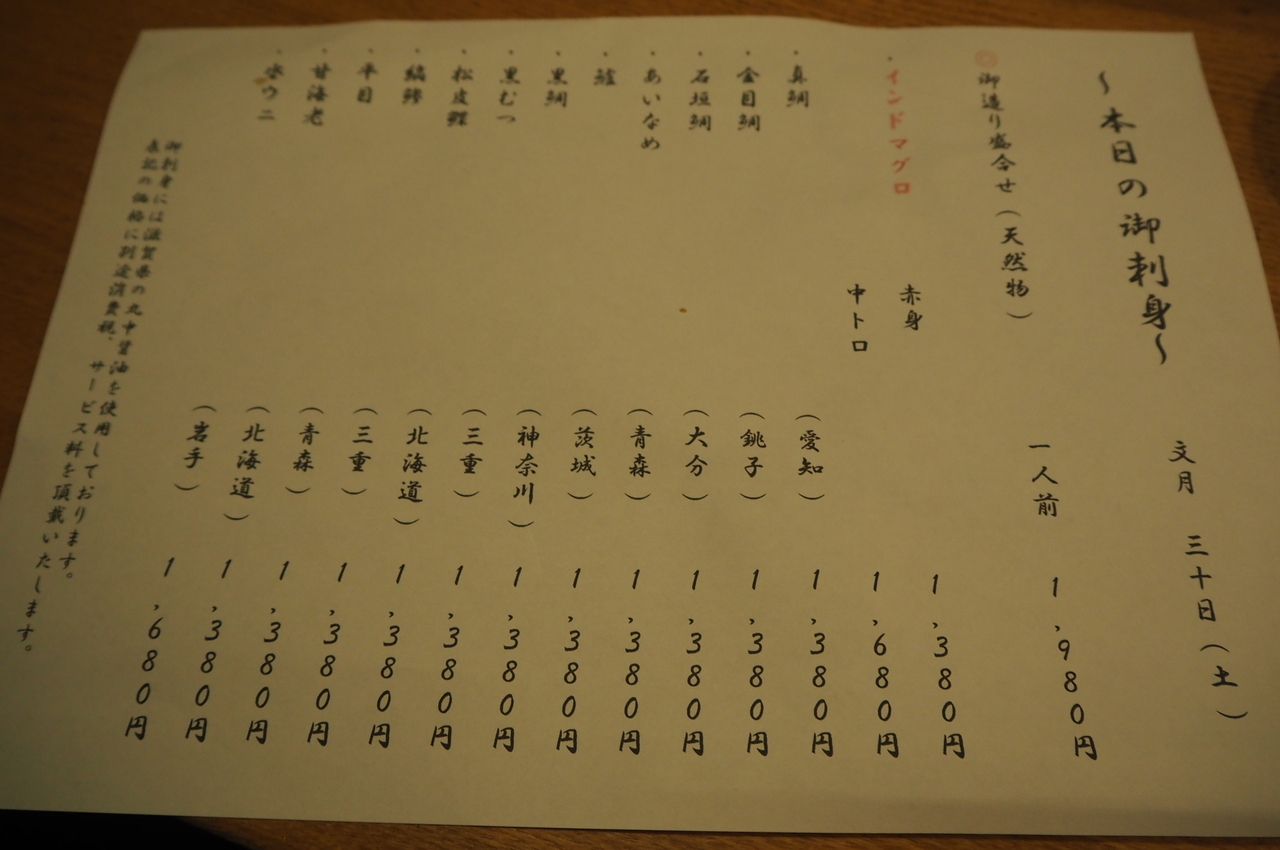 ～本日の御刺身～
文月 三十日（土）
◎御造り盛合せ（天然物） 一人前 1,980円
・インドマグロ 赤身 1,380円
中トロ 1,680円
・真鯛 （愛知） 1,380円
・金目鯛 （銚子） 1,380円
・石垣鯛 （大分） 1,380円
・あいなめ （青森） 1,380円
・鱸 （茨城） 1,380円
・黒鯛 （神奈川） 1,380円
・黒むつ （三重） 1,380円
・松皮鰈 （北海道） 1,380円
・縞鯵 （三重） 1,380円
・平目 （青森） 1,380円
・甘海老 （北海道） 1,380円
・水ウニ （岩手） 1,680円
御刺身には滋賀県の丸中醤油を使用しております。
表記の価格に別途消費税、サービス料を頂戴いたします。